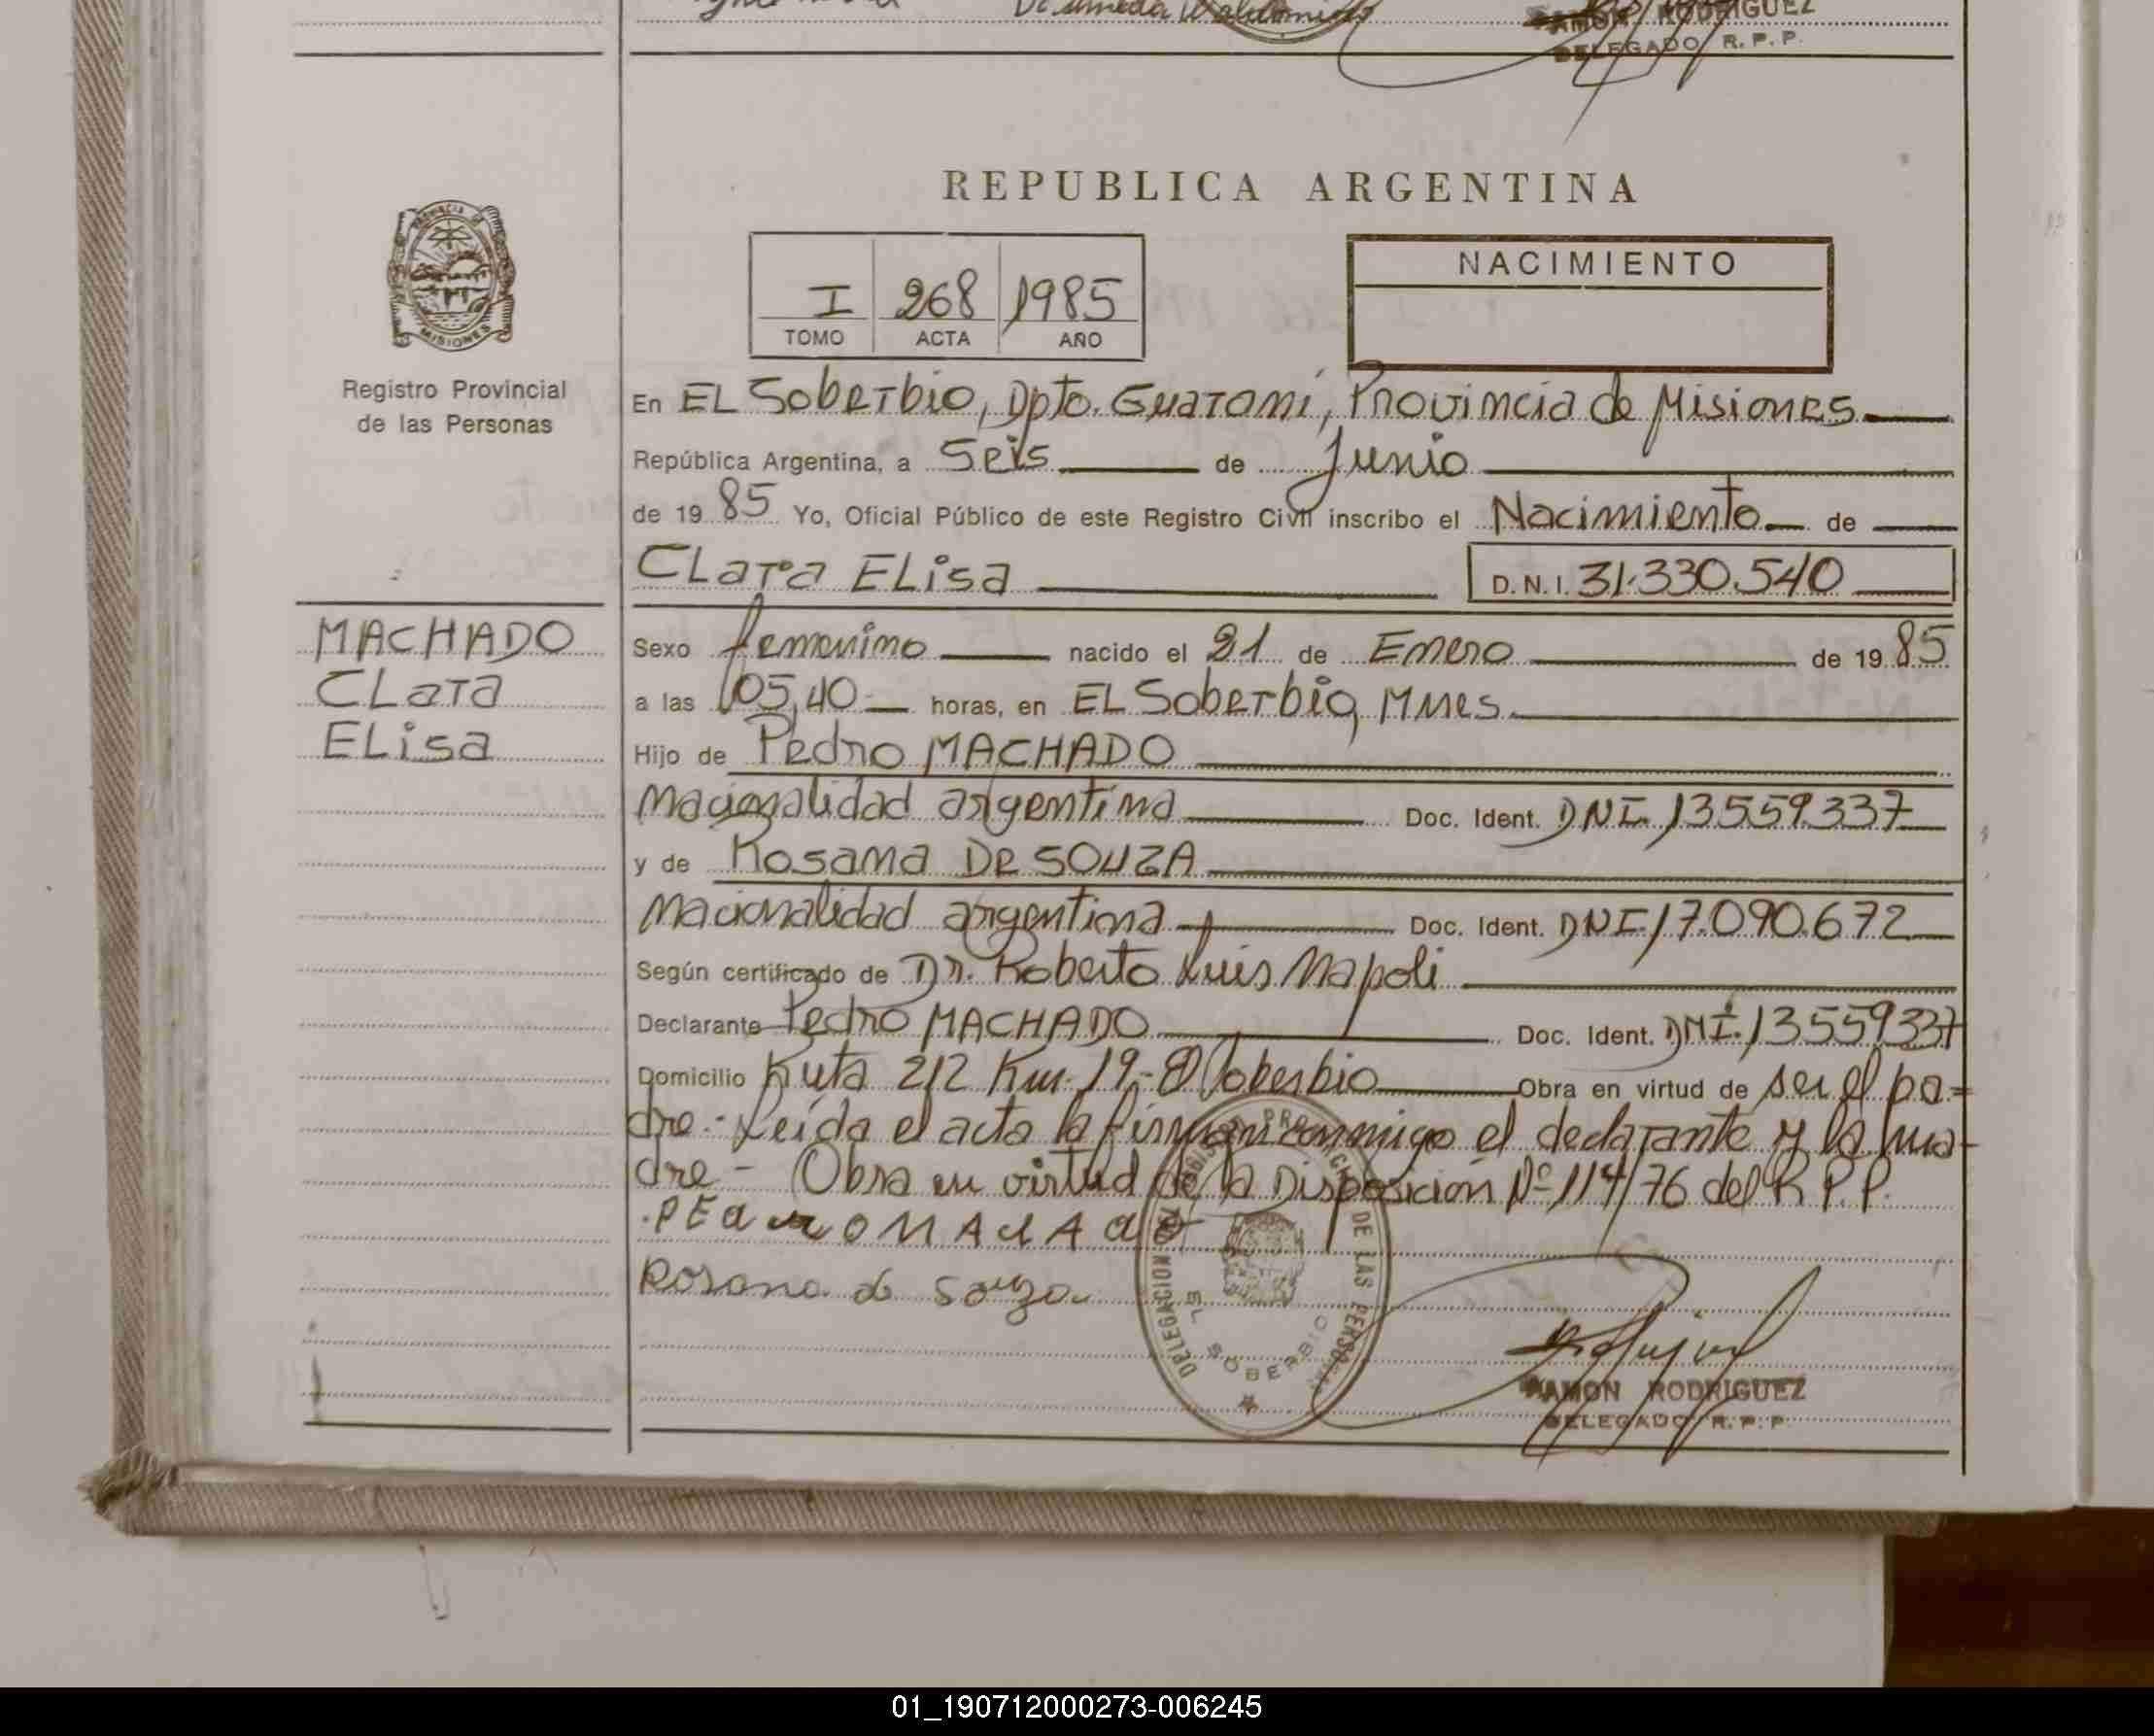 RAMON RODRIGUEZ
DELEGADO R. P. P.
REPUBLICA ARGENTINA
PROVINCIA DE
MISIONES
Registro Provincial
de las Personas
I 268 1985
TOMO ACTA AÑO
NACIMIENTO
En EL Soberbio, Dpto. Guaraní, Provincia de Misiones
República Argentina, a Seis de Junio
de 19 85 Yo, Oficial Público de este Registro Civil inscribo el Nacimiento de
CLara ELisa D. N. I. 31.330.540
MACHADO
CLara
ELisa
Sexo femenino nacido el 21 de Enero de 19 85
a las 05,40 horas, en EL Soberbio, Mnes.
Hijo de Pedro MACHADO
nacionalidad argentina Doc. Ident. DNI. 13.559.337
y de Rosana DE SOUZA
nacionalidad argentina Doc. Ident. DNI. 17.090.672
Según certificado de Dr. Roberto Luis Napoli
Declarante Pedro MACHADO Doc. Ident. DNI. 13559337
Domicilio Ruta 212 Km. 19 - El Soberbio Obra en virtud de ser el pa-
dre.- Leída el acta la firman conmigo el declarante y la ma-
dre - Obra en virtud de la Disposición Nº 114/76 del R.P.P.
Rosana de Souza
DELEGACION REGISTRO PROVINCIAL DE LAS PERSONAS
EL SOBERBIO
RAMON RODRIGUEZ
DELEGADO R. P. P.
01_190712000273-006245